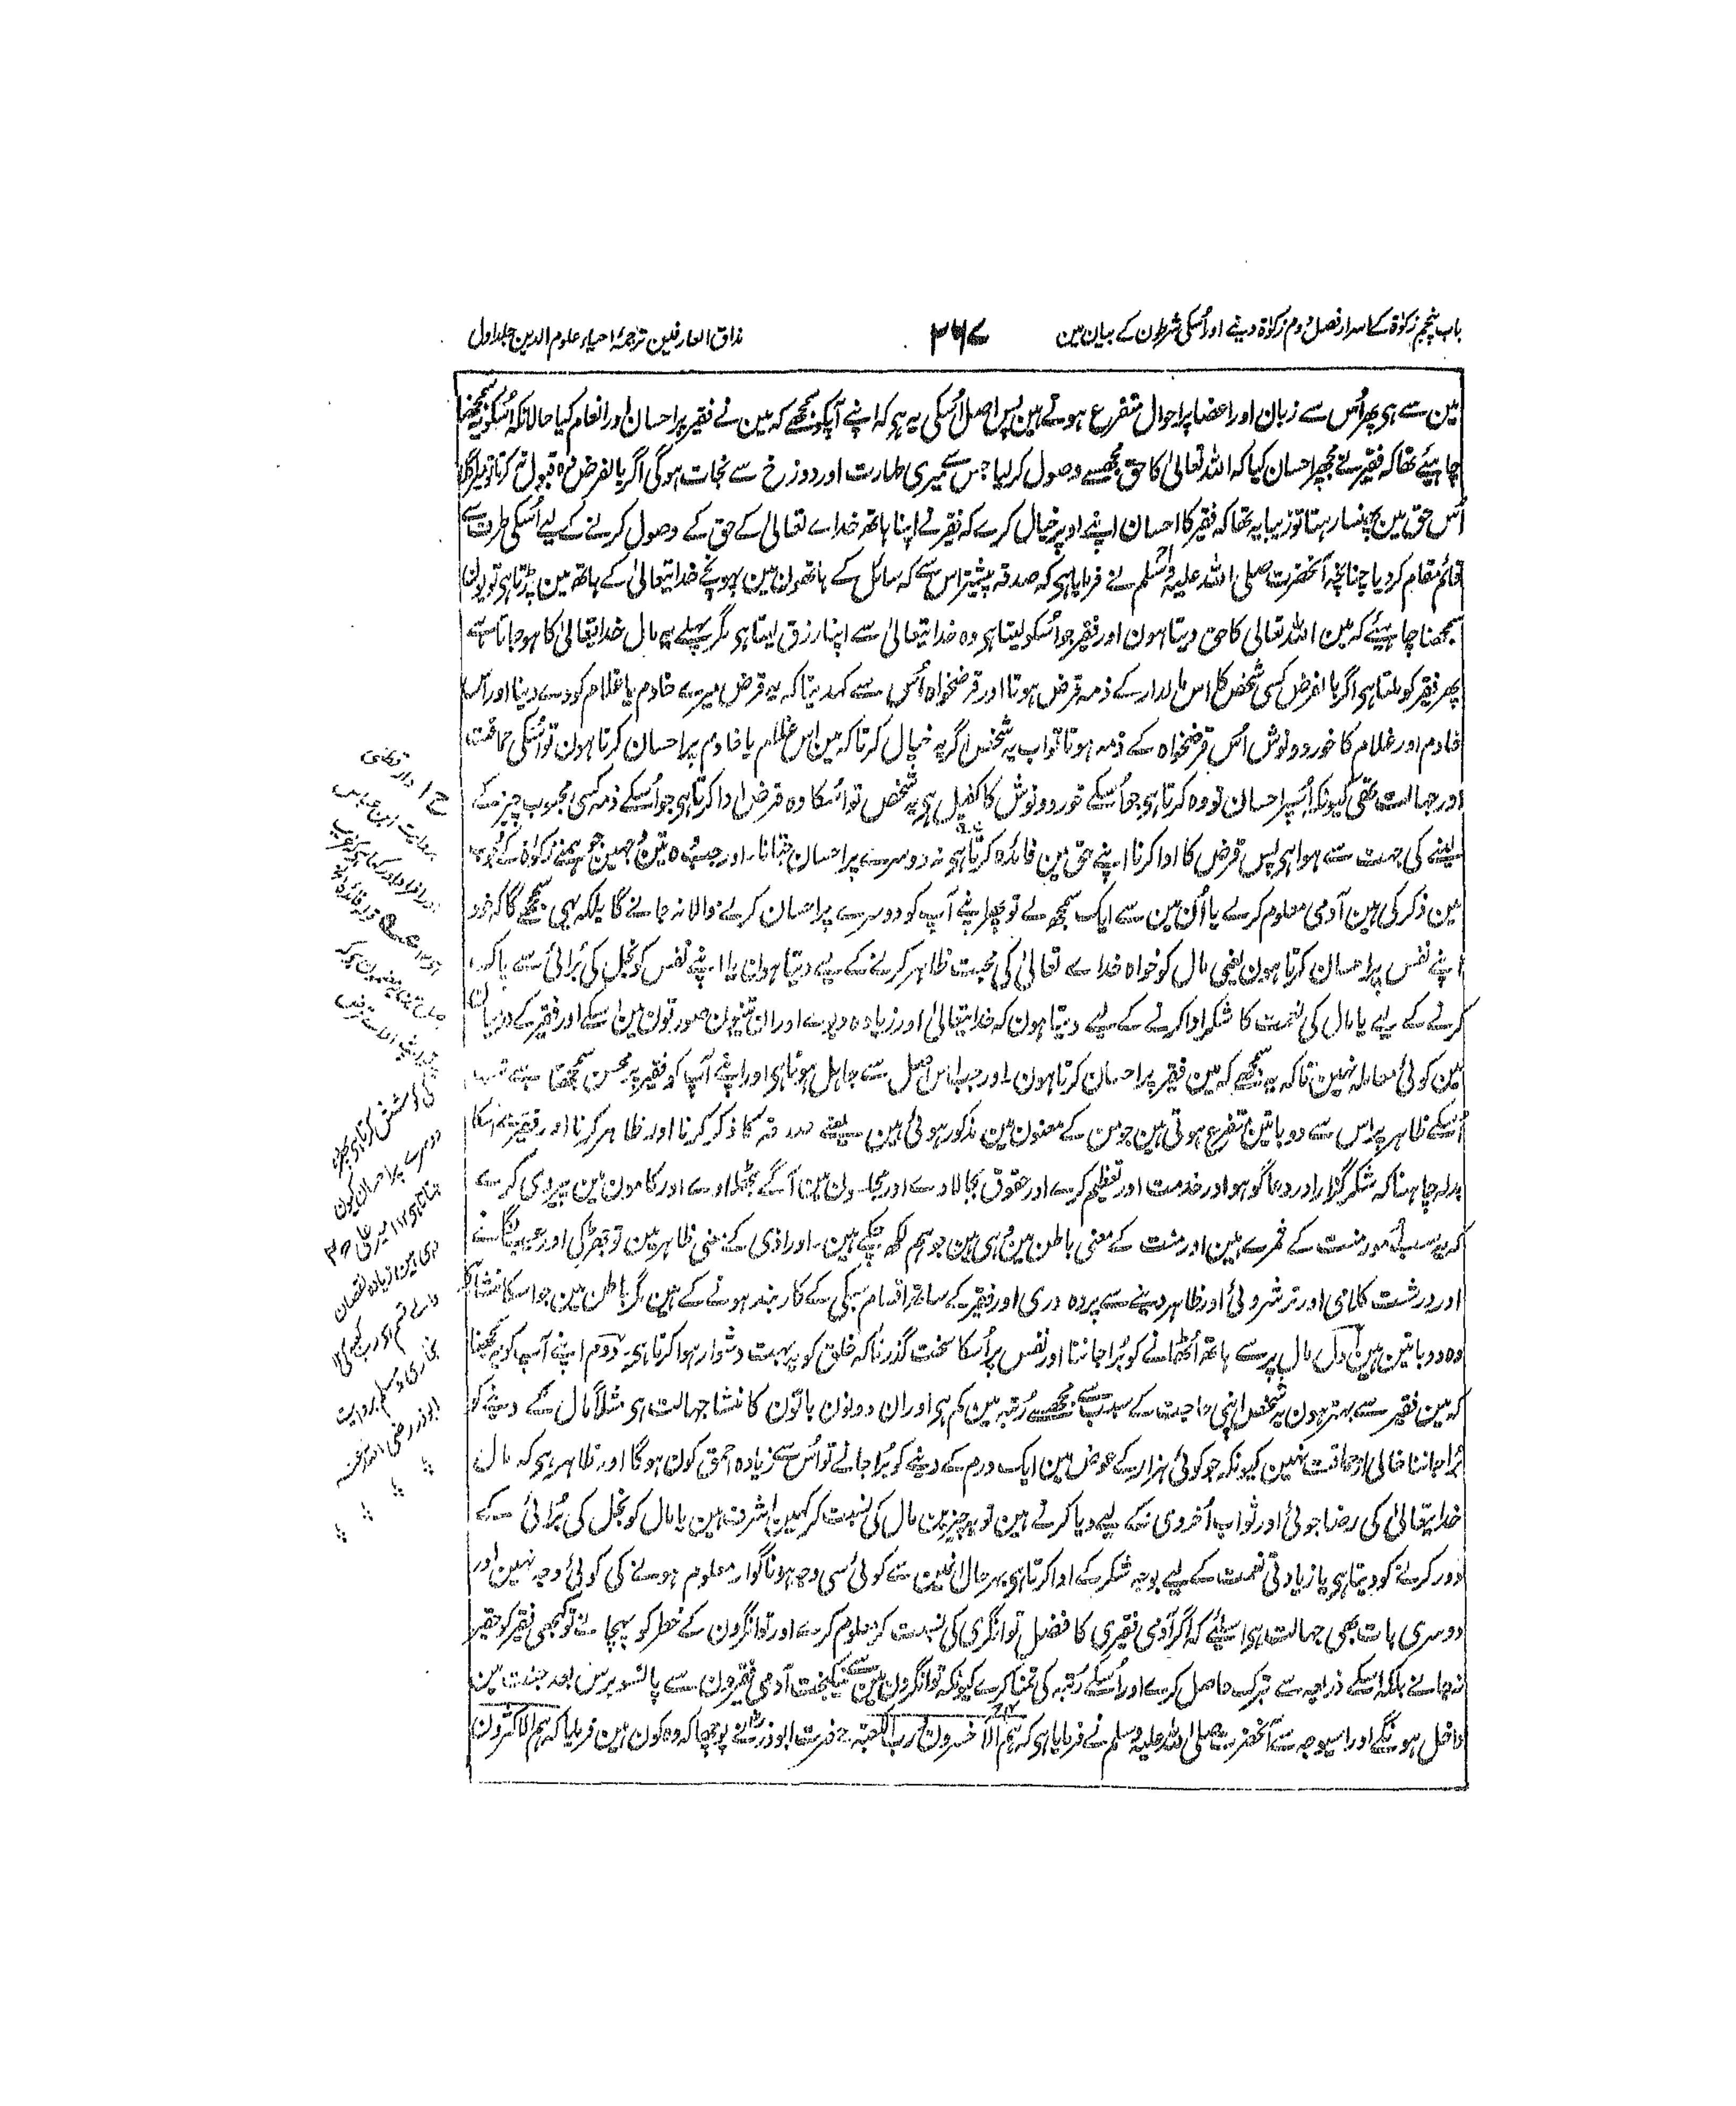 باب پنجم زکوٰۃ کے اسرار فصل دوم زکوٰۃ دینے اور اُسکی شرطون کے بیان مین
۲۶۷
مذاق العارفین ترجمۂ احیاء علوم الدین جلد اول
مین سے ہی پھر اُس سے زبان اور اعضا پر احوال متفرع ہوتے ہین پس اصل اُسکی یہ ہی کہ اپنے آپکو سمجھے کہ مین نے فقیر پر احسان اور انعام کیا حالانکہ اُسکو یہ سمجھنا
چاہیئے تھا کہ فقیر نے مجھپر احسان کیا کہ اللہ تعالیٰ کا حق مجھسے وصول کر لیا جس سے میری طہارت اور دوزخ سے نجات ہوگی اگر بالفرض وہ قبول نہ کرتا تو میرا گلا
اُس حق مین پھنسا رہتا تو زیبا یہ تھا کہ فقیر کا احسان اپنے اوپر خیال کرے کہ فقیر نے اپنا ہاتھ خداے تعالیٰ کے حق کے وصول کرنے کے لیے اُسکی طرف سے
قائم مقام کر دیا چنانچہ آنحضرت صلی اللہ علیہ وسلم نے فرمایا ہی کہ صدقہ پیشتر اس سے کہ سائل کے ہاتھون مین پہونچے خدا یتعالیٰ کے ہاتھ مین پڑتا ہی تو یون
سمجھنا چاہیئے کہ مین اللہ تعالیٰ کا حق دیتا ہون اور فقیر جو اُسکو لیتا ہی وہ خدا یتعالیٰ سے اپنا رزق لیتا ہی مگر پہلے یہ مال خدا یتعالیٰ کا ہو جاتا ہے
پھر فقیر کو ملتا ہی اگر بالفرض کسی شخص کا اس مالدار کے ذمہ قرض ہوتا اور قرضخواہ اُس سے کہدیتا کہ یہ قرض میرے خادم یا غلام کو دے دینا اور اس
خادم اور غلام کا خورد و نوش اُس قرضخواہ کے ذمہ ہوتا تو اب یہ شخص اگر یہ خیال کرتا کہ مین اس غلام یا خادم پر احسان کرتا ہون تو اُسکی حماقت
اور جہالت تھی کیونکہ اُسپر احسان تو وہ کرتا ہی جو اُسکے خورد و نوش کا کفیل ہی یہ شخص تو اُسکا وہ قرض ادا کرتا ہی جو اُسکے ذمہ کسی محبوب چیز کے
لینے کی جہت سے ہوا ہی پس قرض کا ادا کرنا اپنے حق مین فائدہ کرتا ہی نہ دوسرے پر احسان جتانا ۔ اور جب وہ تین وجہین جو ہمنے زکوٰۃ کے وجوب
مین ذکر کی ہین آدمی معلوم کرے یا اُن مین سے ایک سمجھ لے تو پھر اپنے آپ کو دوسرے پر احسان کرنے والا نہ جانے گا بلکہ یہی سمجھے گا کہ خود
اپنے نفس پر احسان کرتا ہون یعنی مال کو خواہ خداے تعالیٰ کی محبت ظاہر کرنے کے لیے دیتا ہون یا اپنے نفس کو بخل کی بُرائی سے پاک
کرنے کے لیے یا مال کی نعمت کا شکر ادا کرنے کے لیے دیتا ہون کہ خدا یتعالیٰ اور زیادہ دیوے اور ان تینون صورتون مین اسکے اور فقیر کے درمیان
مین کوئی معاملہ نہین تاکہ یہ سمجھے کہ مین فقیر پر احسان کرتا ہون ۔ اور جب اس اصل سے جاہل ہوتا ہی اور اپنے آپ کو فقیر پر محسن سمجھتا ہے تب
اُسکے ظاہر پر اس سے دو باتین متفرع ہوتی ہین جو من کے معنون مین مذکور ہوئی ہین یعنے صدقہ کا ذکر کرنا اور ظاہر کرنا اور فقیر سے اسکا
بدلہ چاہنا کہ شکر گزار اور دعا گو ہو اور خدمت اور تعظیم کرے اور حقوق بجا لاوے اور مجلسون مین آگے بٹھلاوے اور کامون مین پیروی کرے
کہ یہ سب امور منت کے ثمرے ہین اور منت کے معنی باطن مین وہی ہین جو ہم لکھ چکے ہین ۔ اور اذیٰ کے معنی ظاہر مین تو جھڑکی اور عیب لگانے
اور درشت کلامی اور ترشروئی اور ظاہر دینے سے پردہ دری اور فقیر کے ساتھ اقسام سبکی کے کاربند ہونے کے ہین مگر باطن مین جو اسکا منشا ہی
وہ دو باتین ہین اول مال پر سے ہاتھ اُٹھانے کو بُرا جاننا اور نفس پر اُسکا سخت گذرنا کہ خلق کو یہ بہت دشوار ہوا کرتا ہی ۔ دوم اپنے آپ کو یہ سمجھنا
کہ مین فقیر سے بہتر ہون یہ شخص اپنی حاجت کے سبب سے مجھسے رُتبہ مین کم ہی اور ان دونون باتون کا منشا جہالت ہی مثلاً مال کے دینے کو
بُرا جاننا خالی از حماقت نہین کیونکہ جو کوئی ہزار کے عوض مین ایک درم کے دینے کو بُرا جانے تو اُس سے زیادہ احمق کون ہوگا اور ظاہر ہی کہ مال
خدا یتعالیٰ کی رضا جوئی اور ثواب اُخروی کے لیے دیا کرتے ہین تو یہ چیزین مال کی نسبت کر کہین اشرف ہین یا مال کو بخل کی بُرائی کے
دور کرنے کو دیتا ہی یا زیادتی نعمت کے لیے بوجہ شکر کے ادا کرتا ہی بہر حال انمین سے کوئی سی وجہ ہو ناگوار معلوم ہونے کی کوئی وجہ نہین اور
دوسری بات بھی جہالت ہی اسلیئے کہ اگر آدمی فقیری کا فضل توانگری کی نسبت کر معلوم کرے اور توانگرون کے خطر کو پہچانے تو کبھی فقیر کو حقیر
نہ جانے بلکہ اسکے ذریعہ سے تبرک حاصل کرے اور اُسکے رُتبہ کی تمنا کرے کیونکہ توانگرون مین سے نیکبخت آدمی فقیرون سے پانسو برس بعد جنت مین
داخل ہونگے اور اسیوجہ سے آنحضرت صلی اللہ علیہ وسلم نے فرمایا ہی کہ ہم الاخسرون و رب الکعبہ حضرت ابوذر رض نے پوچھا کہ وہ کون ہین فرمایا کہ ہم الاکثرون
ح ا دار قطنی
بروایت ابن عباس
کی کوشش کرتا ہی پھر
دوسرے پر احسان کیون
جتاتا ہی ۱۲ امیر علی ح ۳
وہی ہین زیادہ نقصان
والے قسم ہی رب کعبہ کی ۱۲
بخاری و مسلم بروایت
ابوذر رضی اللہ عنہ